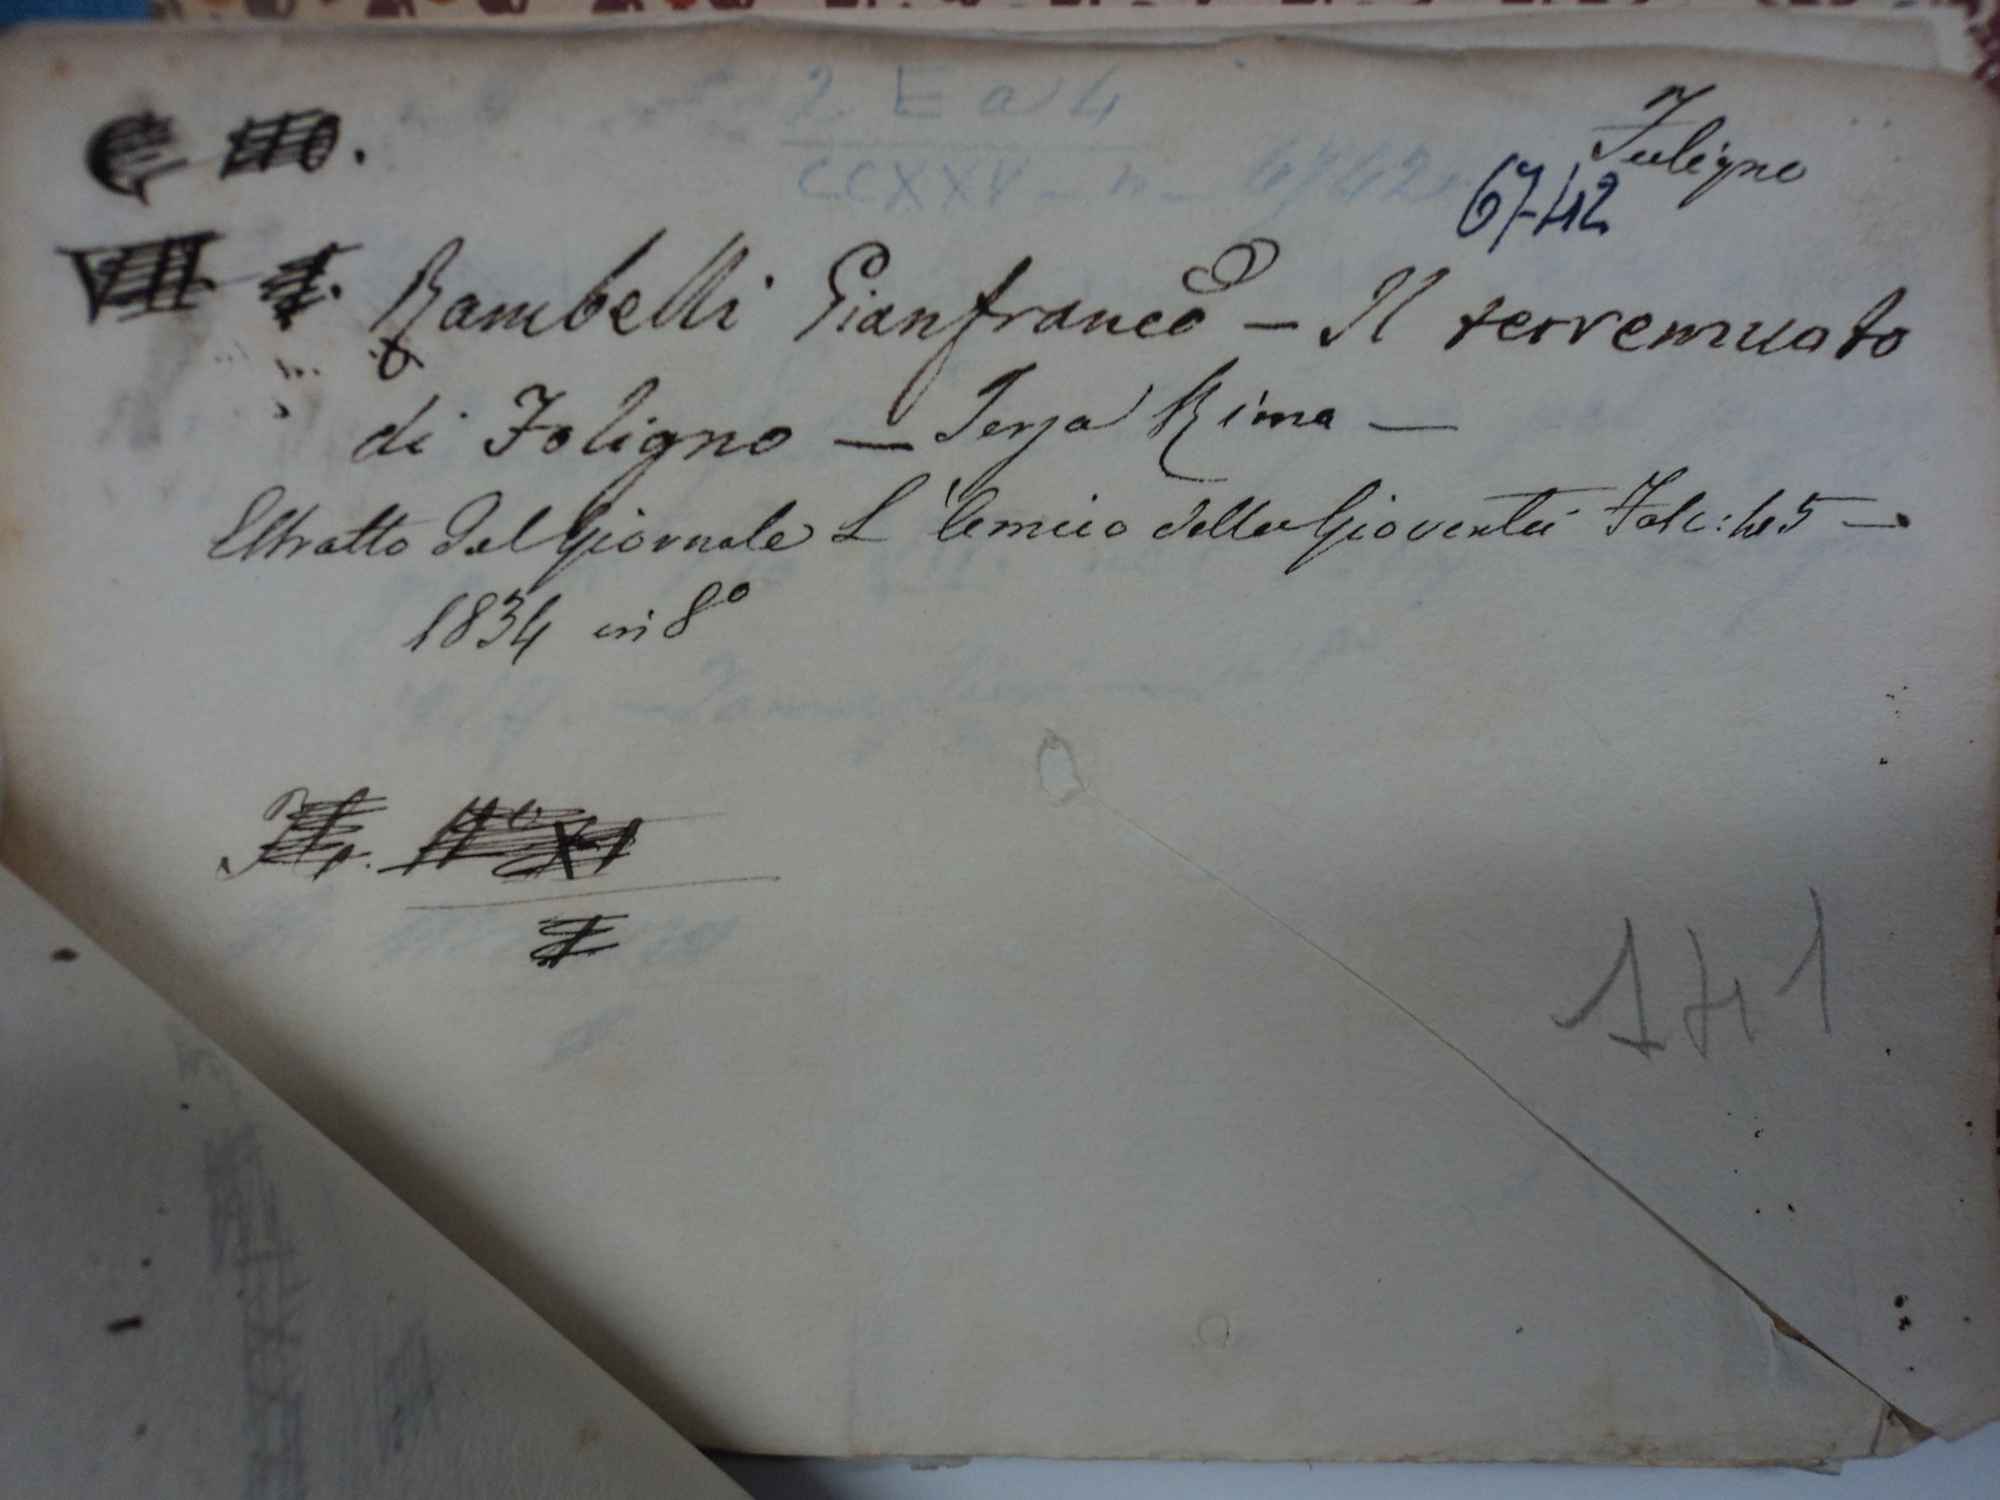 Fuligno
6742
Rambelli Gianfranco — Il terremuoto
di Foligno — Terza Rima —
Estratto dal Giornale L'Amico della Gioventù Fasc: 45 —
1834 in 8º
141